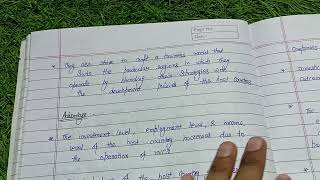 Page No.
Date:
* They also strive to craft a business model that
Suits the particular regions in which they
operate by blending their strategies with
the development policies of the host countries
Advantage:
* The investment level, employment level, & income
level of the host country increases due to
the operation of MNC's
of the host country
* Companies